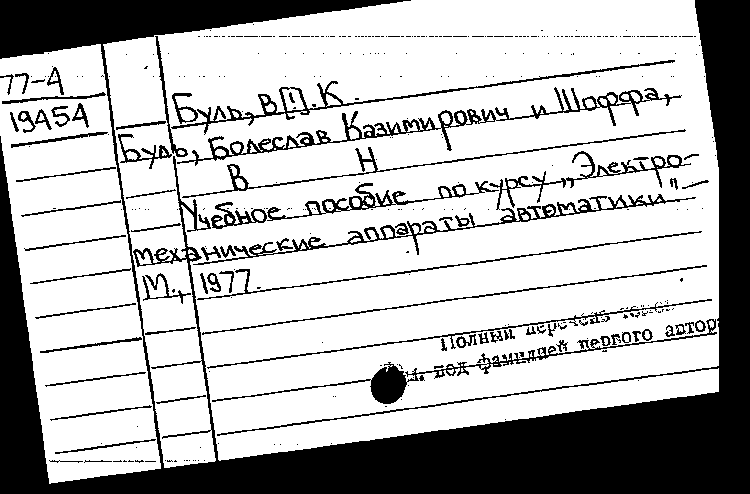 77-4
19454
Буль, В[!]. К.
Буль, Болеслав Казимирович и Шоффа,
В Н
Учебное пособие по курсу „Электро-
механические аппараты автоматики".—
М., 1977.
Полный перечень
см. под фамилией первого автора